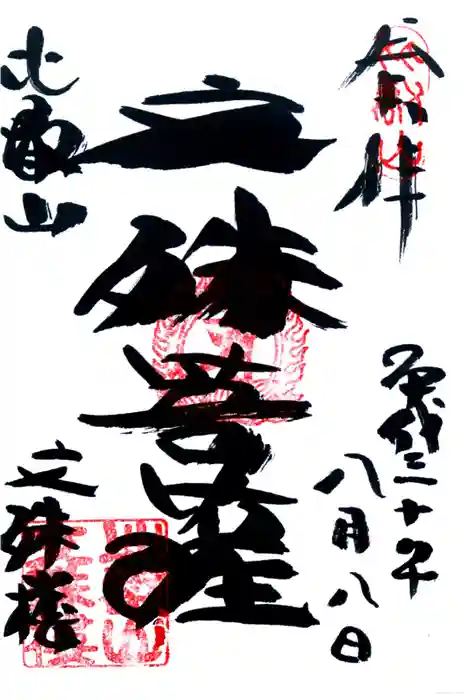 奉拝
平成三十年
八月八日
文殊菩薩
比叡山
文殊楼